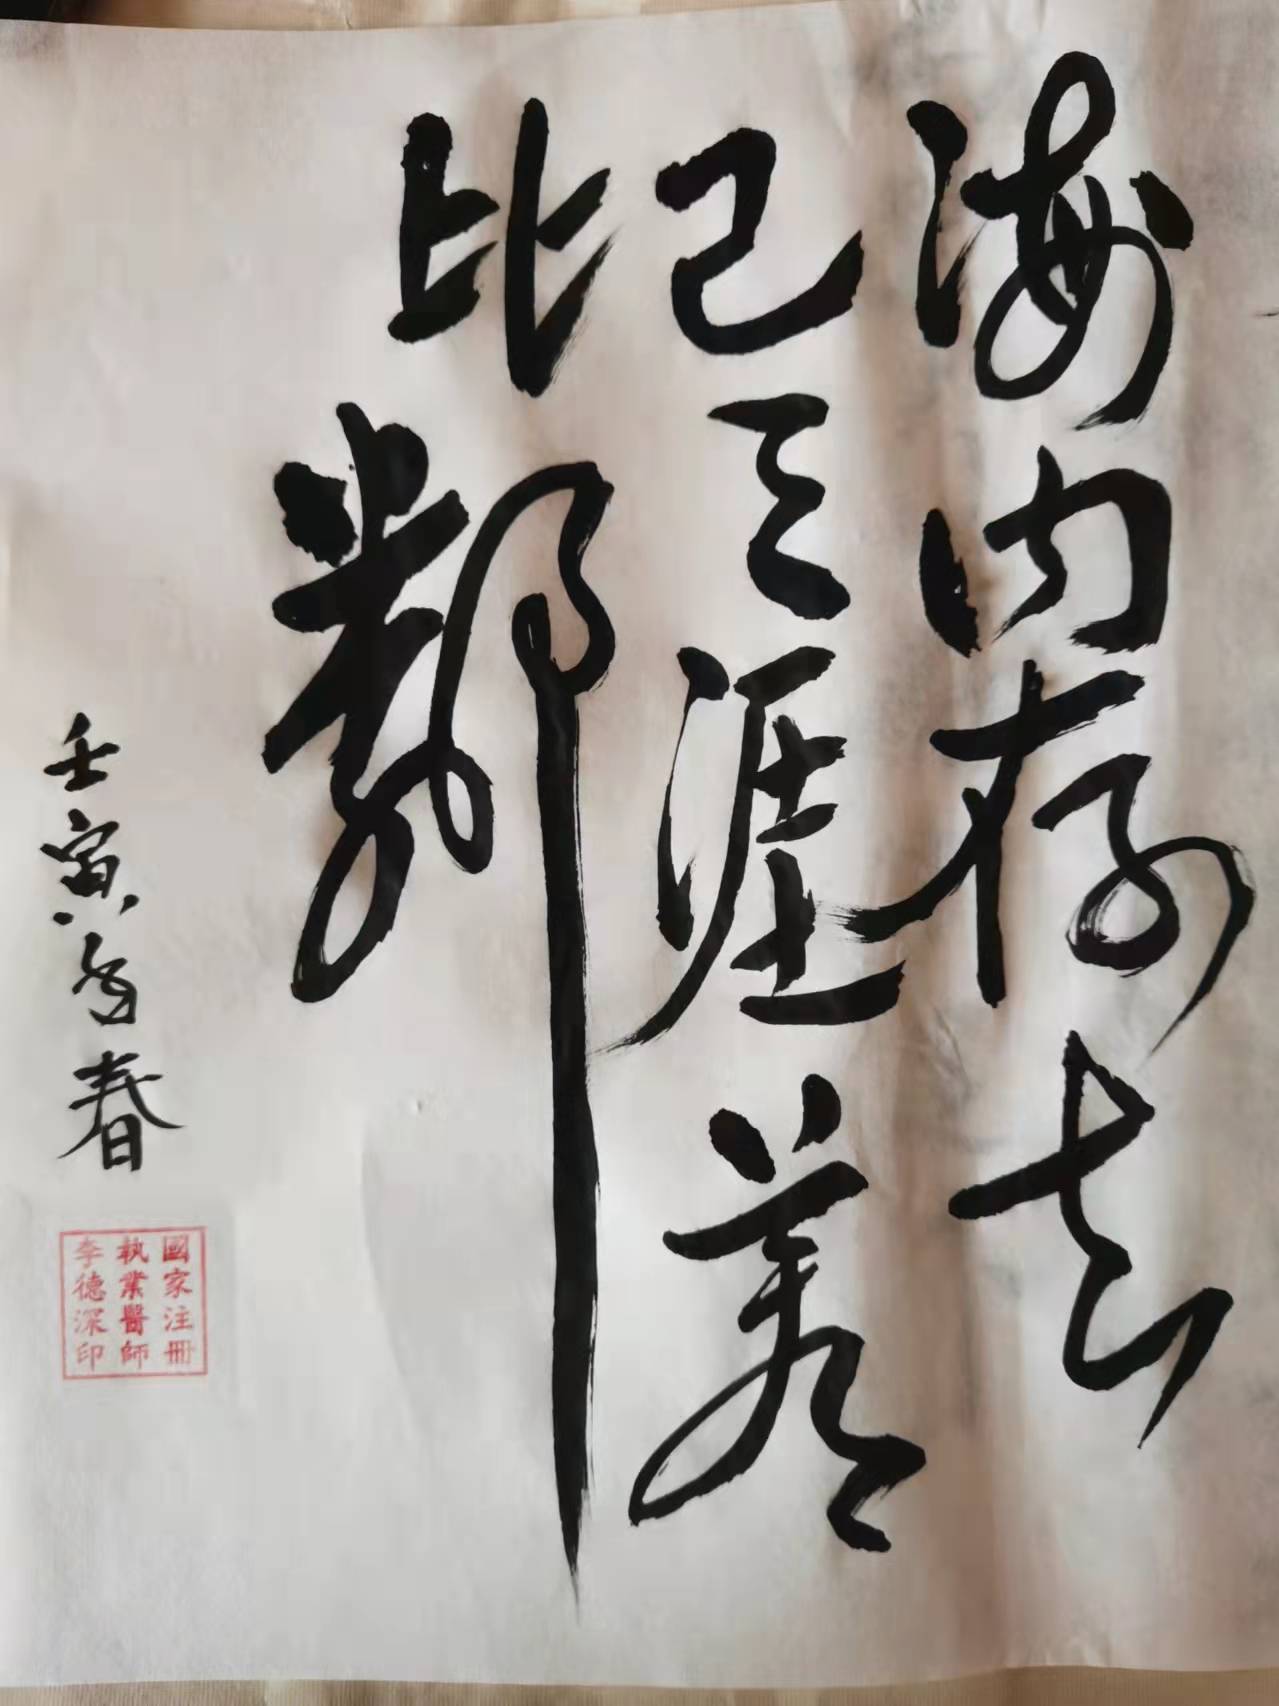 海内存知
己天涯若
比鄰
壬寅年春
國家注冊
執業醫師
李德深印